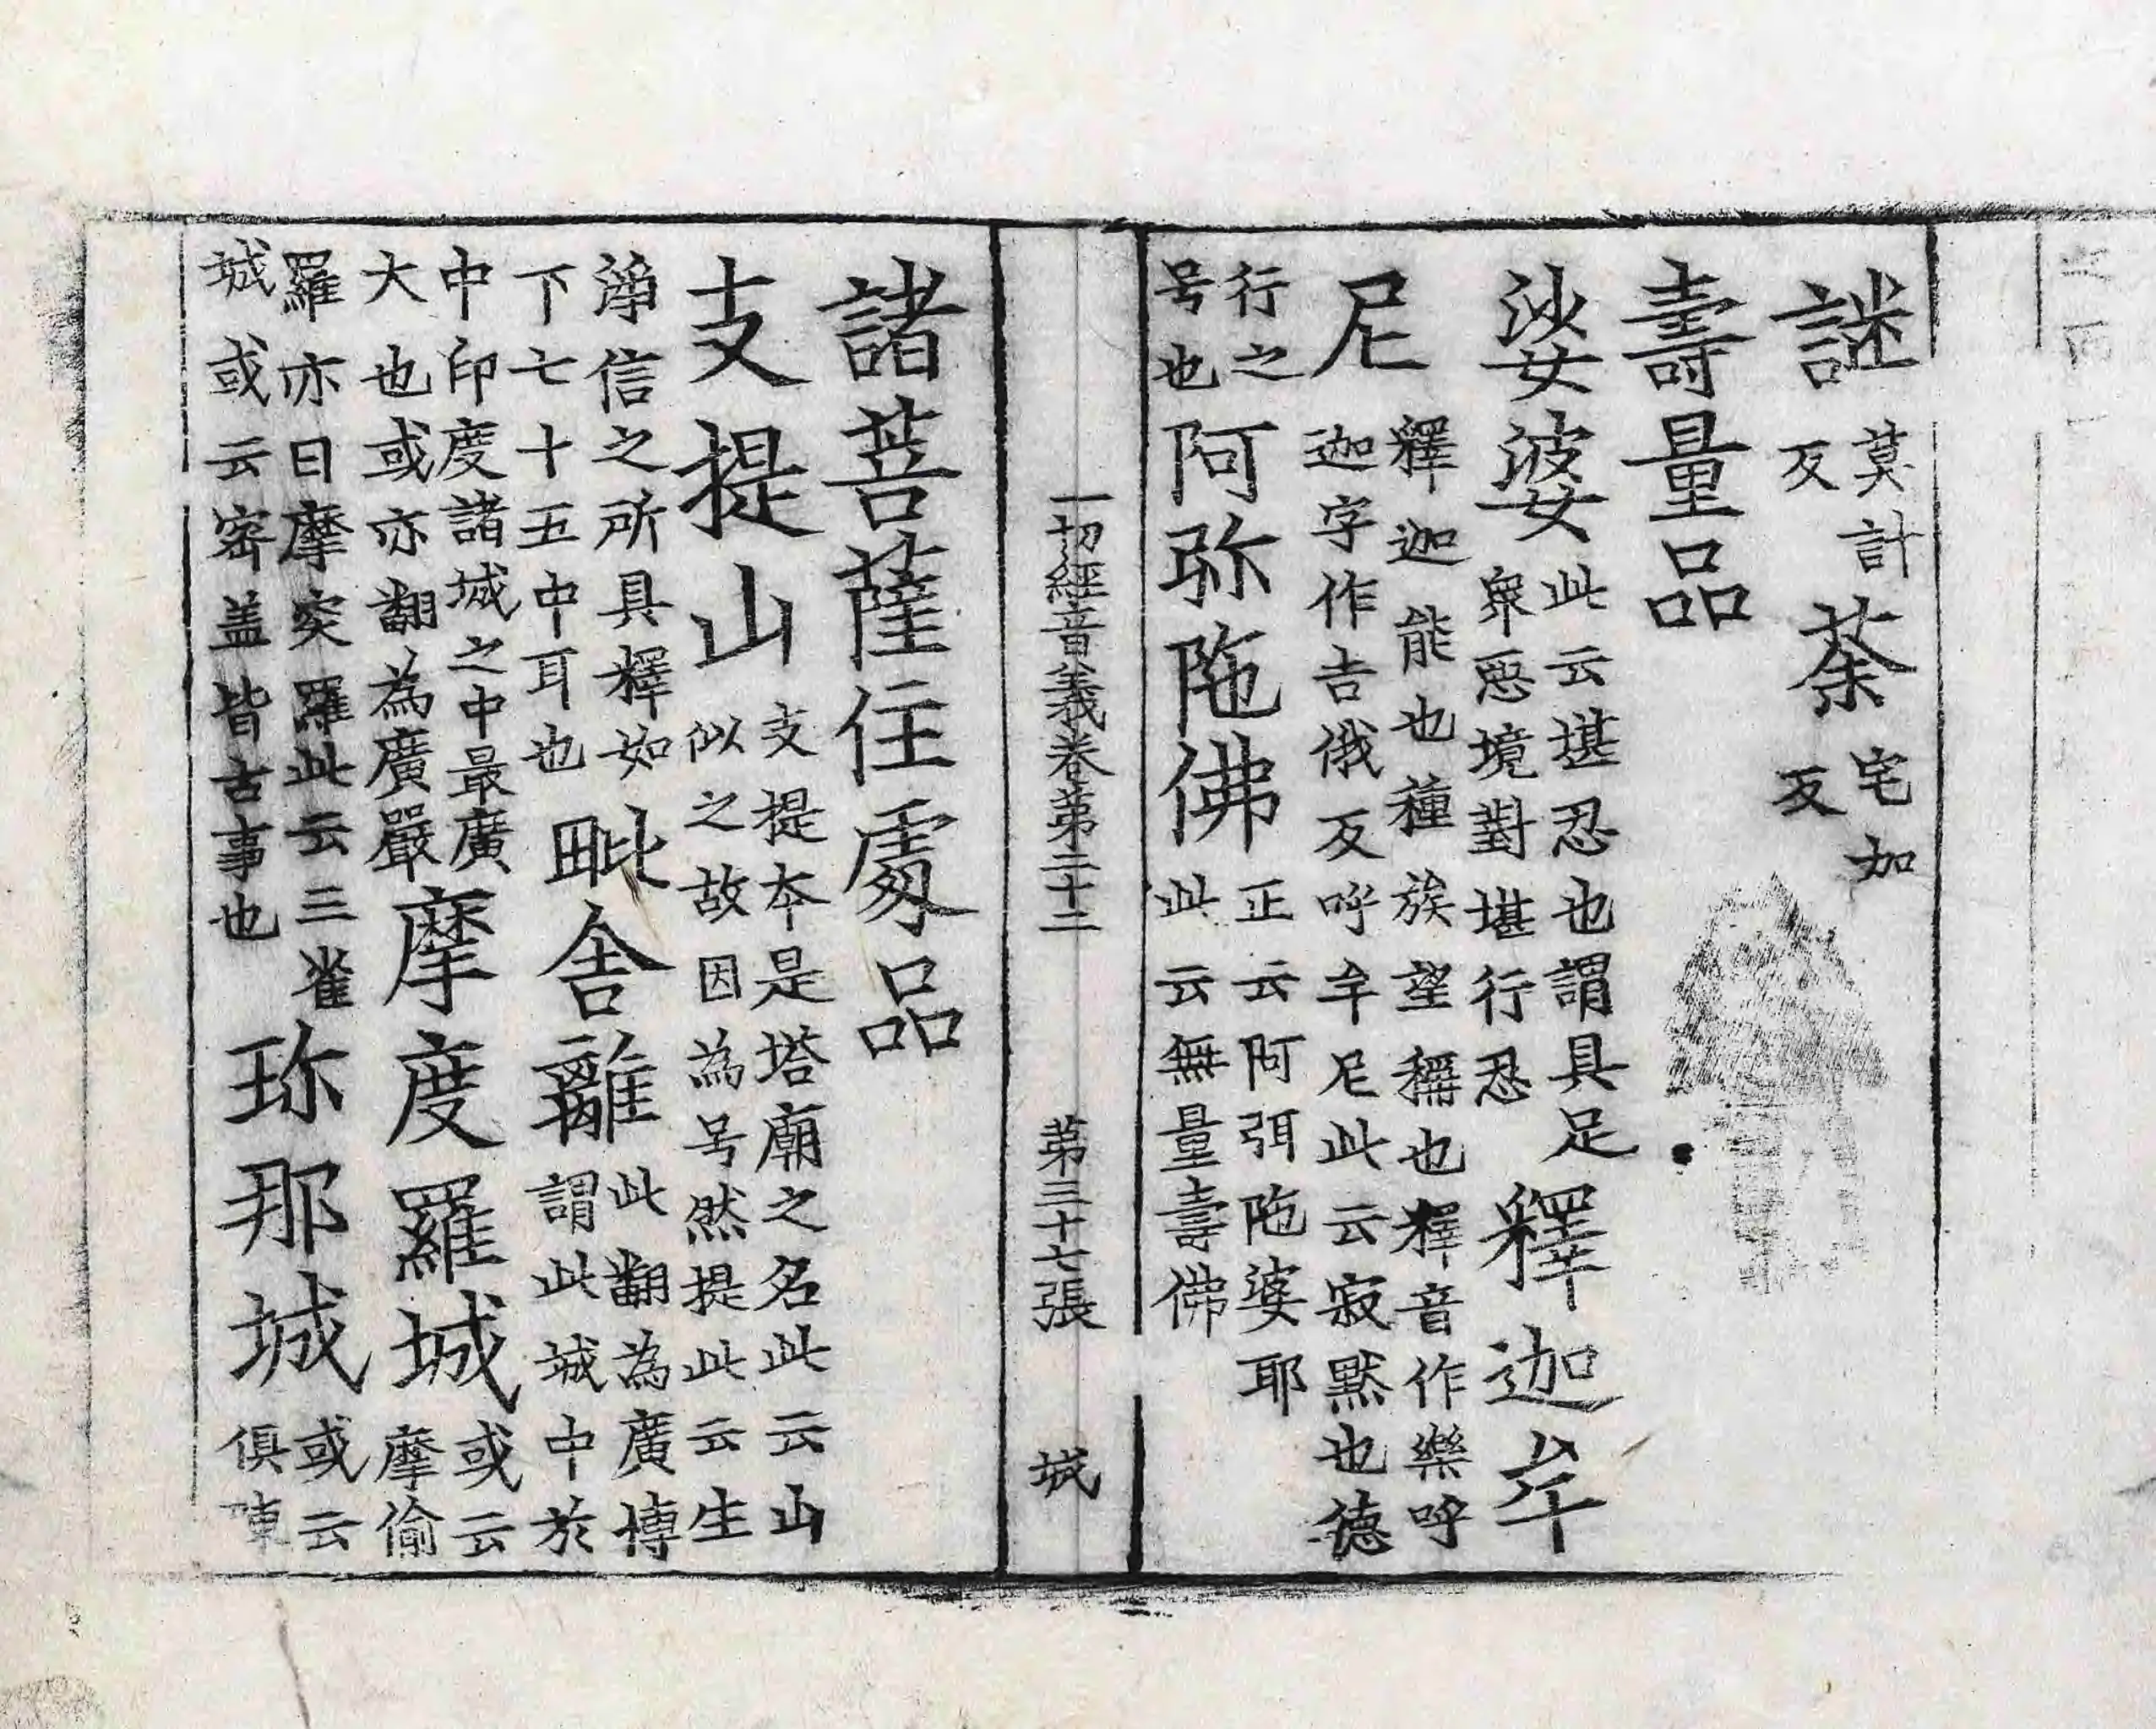 謎莫計反荼宅加反
壽量品
娑婆此云堪忍也謂具足眾惡境對堪行忍釋迦牟
尼釋迦能也種族望稱也釋音作樂呼迦字作吉俄反呼牟尼此云寂默也德
行之号也阿弥陁佛正云阿弭陁婆耶此云無量壽佛
一切經音義卷苐二十二 苐三十七張 城
諸菩薩住處品
支提山支提本是塔廟之名此云山似之故因為号然提此云生
淨信之所具釋如下七十五中耳也毗舍離此翻為廣博謂此城中於
中印度諸城之中最廣大也或亦翻為廣嚴摩度羅城或云摩偷
羅亦曰摩突羅此云三雀城或云密盖皆古事也珎那城或云俱陳